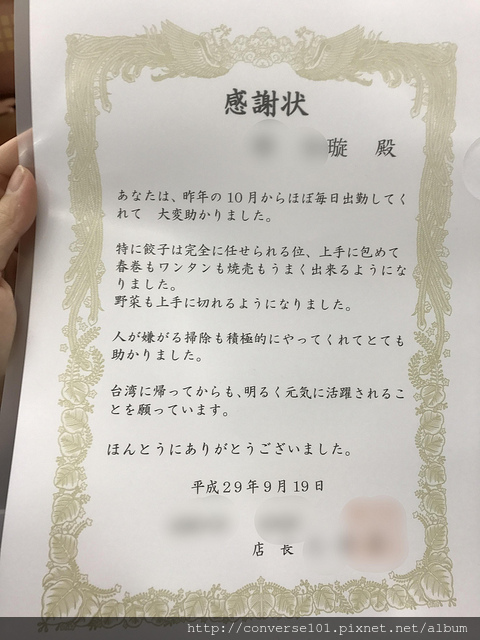 感謝状
璇 殿
あなたは、昨年の10月からほぼ毎日出勤してく
れて 大変助かりました。
特に餃子は完全に任せられる位、上手に包めて
春巻もワンタンも焼売もうまく出来るようにな
りました。
野菜も上手に切れるようになりました。
人が嫌がる掃除も積極的にやってくれてとても
助かりました。
台湾に帰ってからも、明るく元気に活躍されるこ
とを願っています。
ほんとうにありがとうございました。
平成29年9月19日
店 長
http://converse101.pixnet.net/album